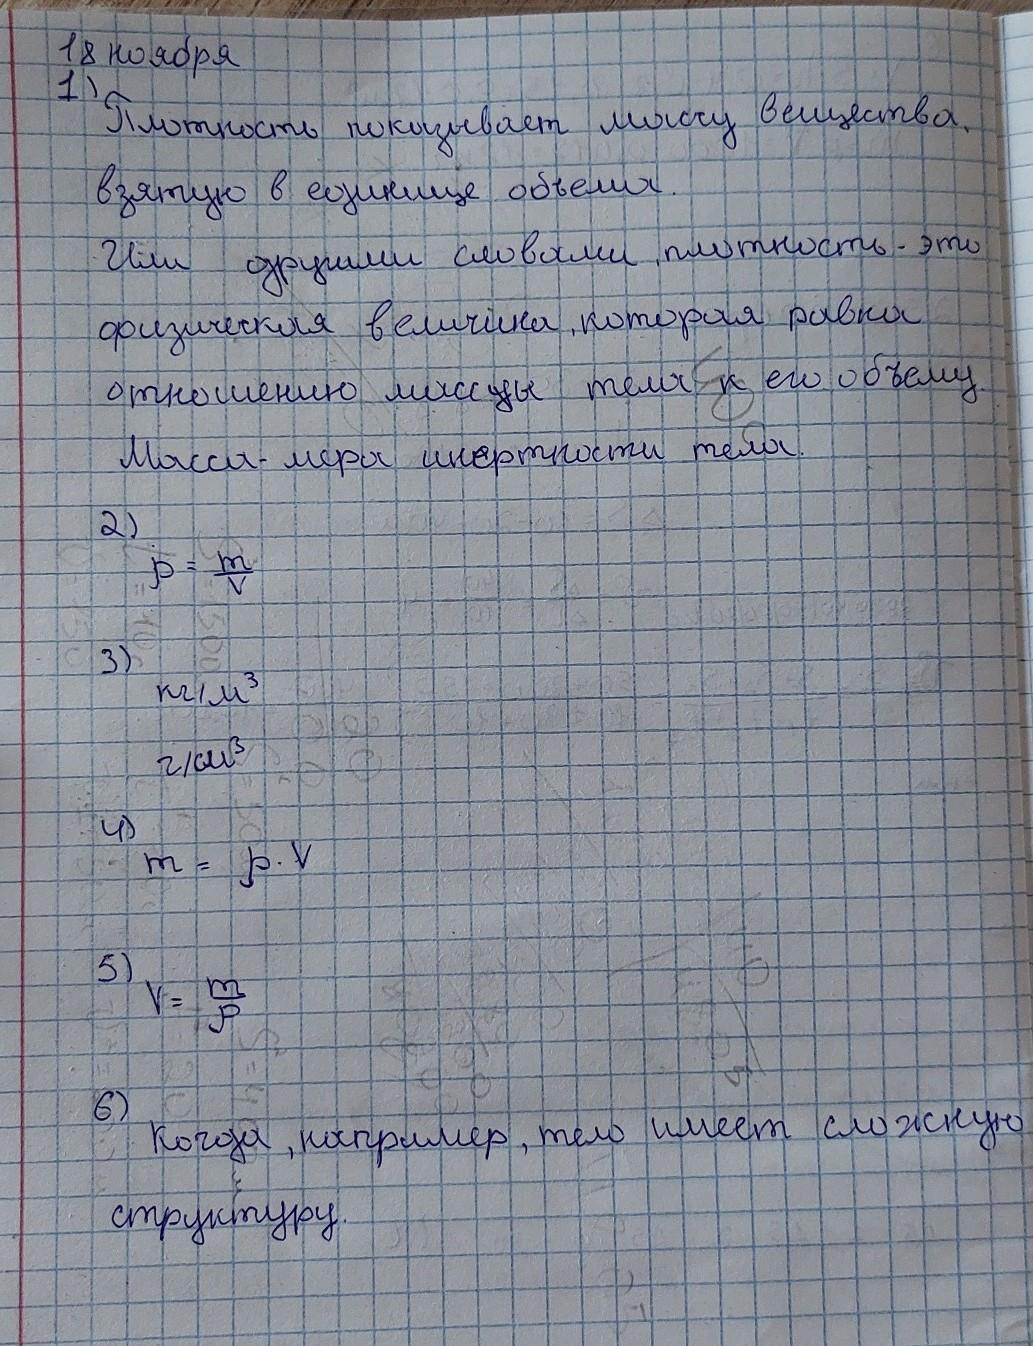 18 ноября
1)
Плотность показывает массу вещества,
взятую в единице объема.
Или другими словами, плотность - это
физическая величина, которая равна
отношению массы тела к его объему.
Масса - мера инертности тела.
2)
ρ = m/V
3)
кг/м³
г/см³
4)
m = ρ · V
5)
V = m/ρ
6)
Когда, например, тело имеет сложную
структуру.